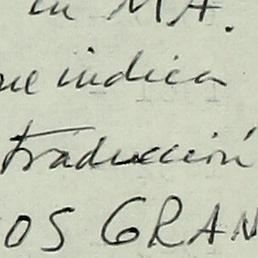 en MA.
ue indica
traducción
OS GRAN